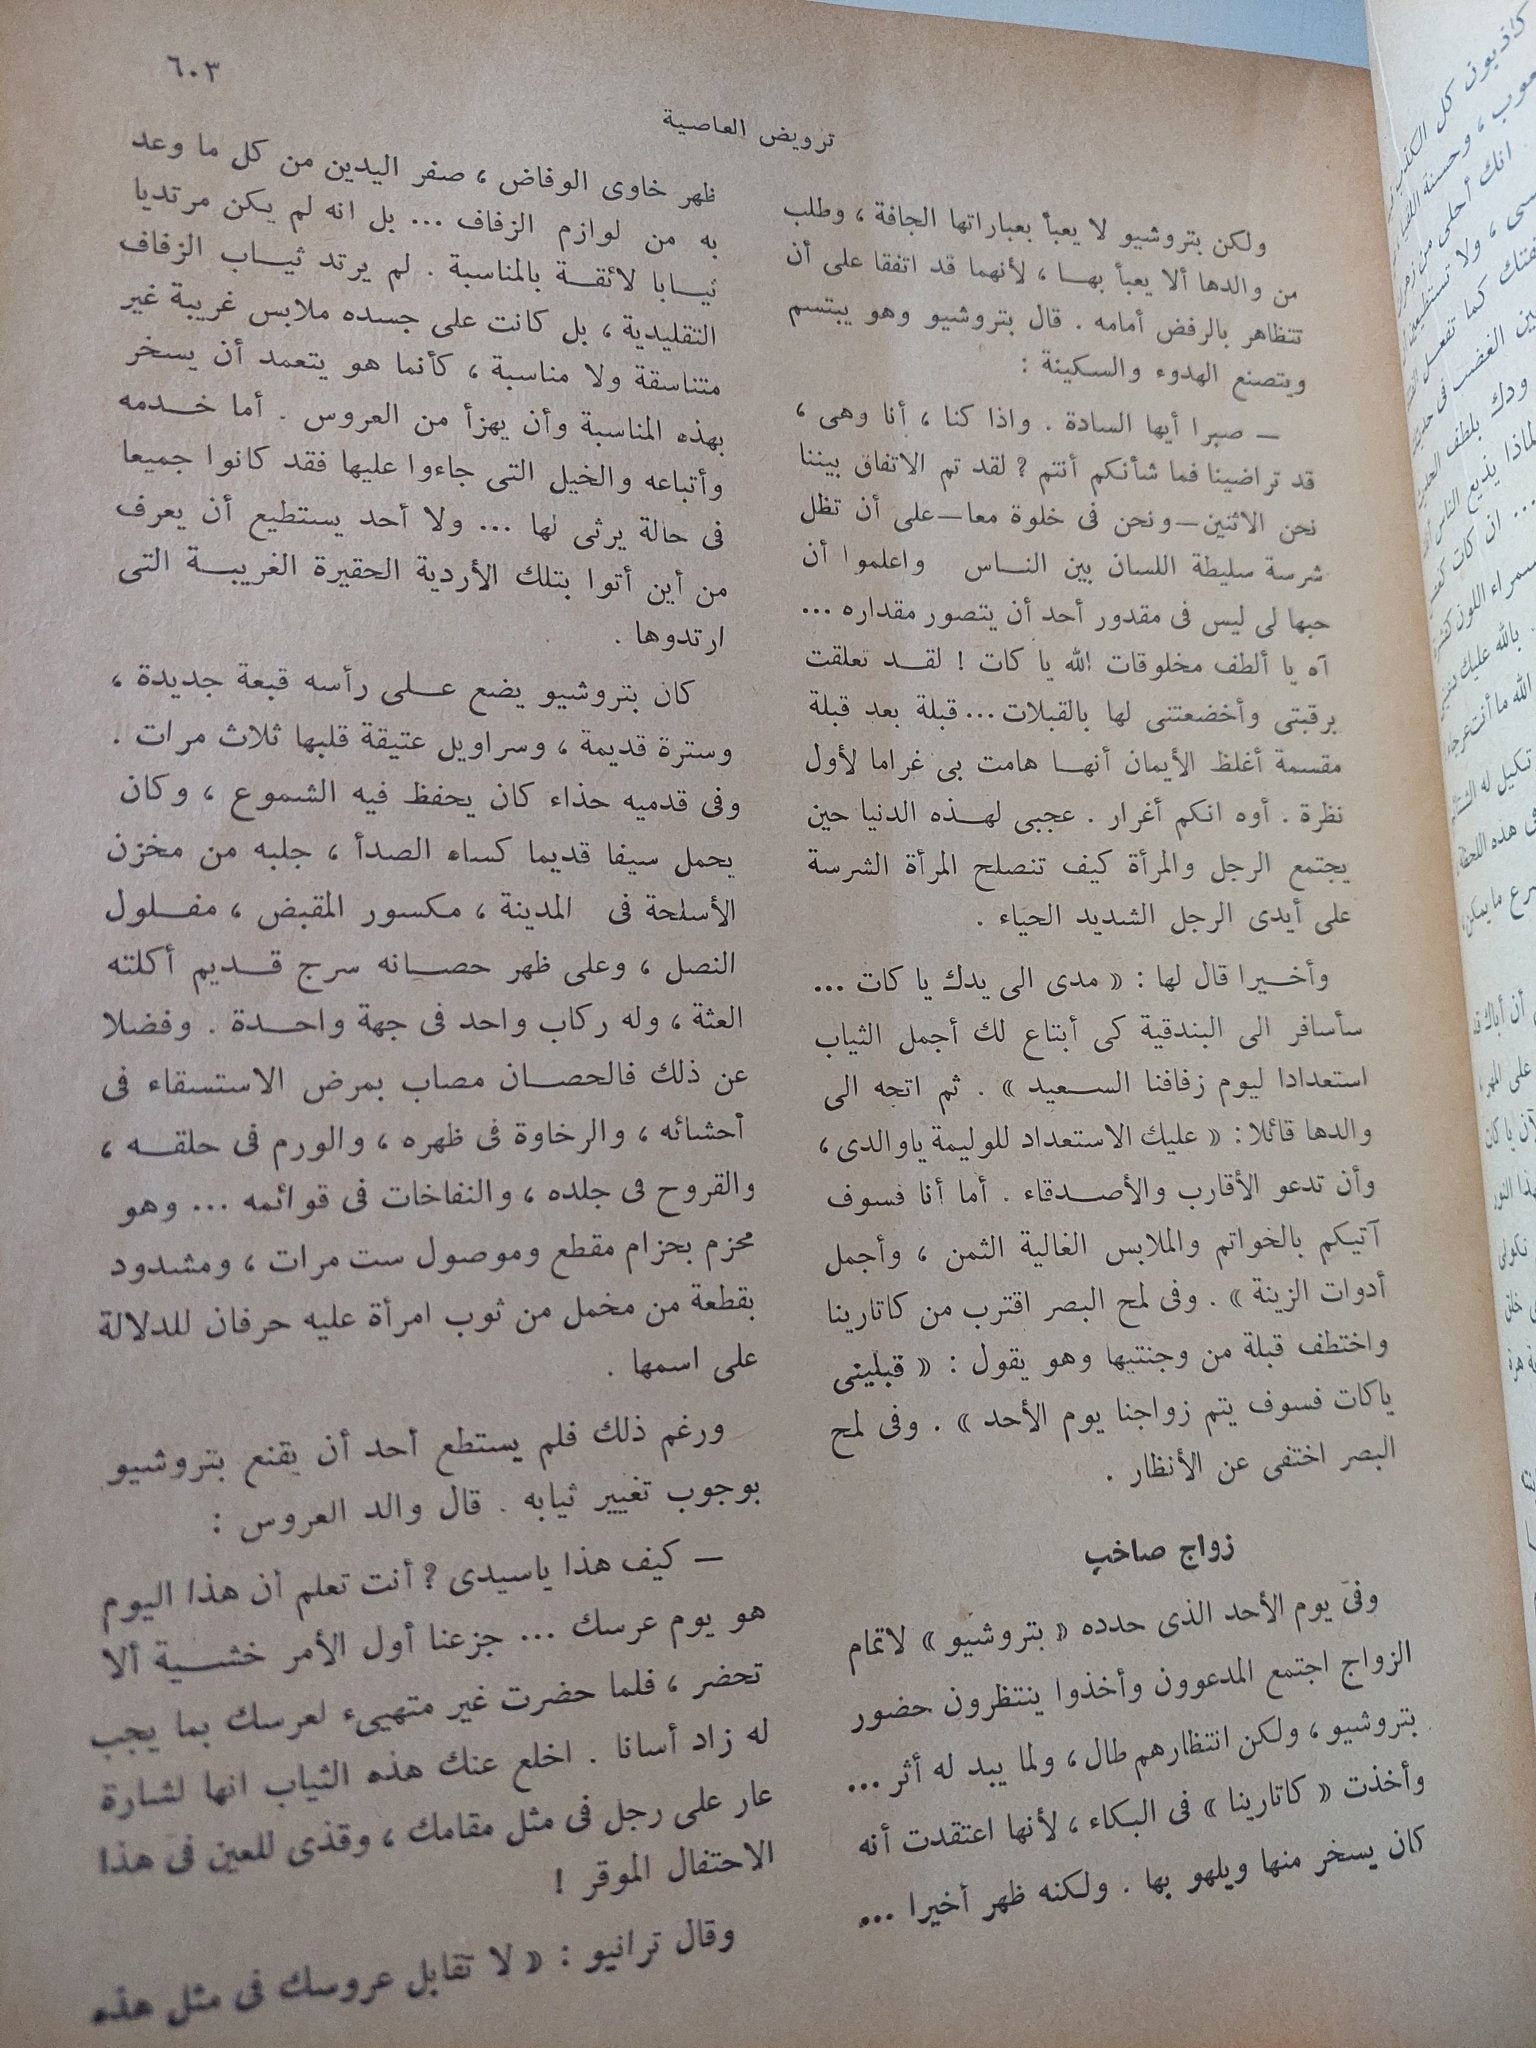 ٦٠٣
ترويض العاصية
ولكن بتروشيو لا يعبأ بعباراتها الجافة ، وطلب
من والدها ألا يعبأ بهـــا ، لأنهما قد اتفقا على أن
تتظاهر بالرفض أمامه . قال بتروشيو وهو يبتسم
ويتصنع الهدوء والسكينة :
— صبرا أيها السادة . واذا كنا ، أنا وهى ،
قد تراضينا فما شأنكم أنتم ? لقد تم الاتفاق بيننا
نحن الاثنين—ونحن فى خلوة معا—على أن تظل
شرسة سليطة اللسان بين النــاس واعلموا أن
حبها لى ليس فى مقدور أحد أن يتصور مقداره ...
آه يا ألطف مخلوقات الله يا كات ! لقــد تعلقت
برقبتى وأخضعتنى لها بالقبلات ... قبلة بعد قبلة
مقسمة أغلظ الأيمان أنهــا هامت بى غراما لأول
نظرة . أوه انكم أغرار . عجبى لهــذه الدنيا حين
يجتمع الرجل والمرأة كيف تنصلح المرأة الشرسة
على أيدى الرجل الشديد الحياء .
وأخــيرا قال لها : « مدى الى يدك يا كات ...
سأسافر الى البندقية كى أبتاع لك أجمل الثياب
استعدادا ليوم زفافنا الســعيد » . ثم اتجه الى
والدها قائلا : « عليك الاستعداد للوليمة ياوالدى ،
وأن تدعو الأقارب والأصــدقاء . أما أنا فسوف
آتيكم بالخواتم والملابس الغالية الثمن ، وأجمل
أدوات الزينة » . وفى لمح البصر اقترب من كاتارينا
واختطف قبلة من وجنتيها وهو يقول : « قبلينى
ياكات فسوف يتم زواجنا يوم الأحد » . وفى لمح
البصر اختفى عن الأنظار .
زواج صاخب
وفى يوم الأحد الذى حدده « بتروشيو » لاتمام
الزواج اجتمع المدعوون وأخذوا ينتظرون حضور
بتروشيو ، ولكن انتظارهم طال ، ولما يبد له أثر ...
وأخذت « كاتارينا » فى البكاء ، لأنها اعتقدت أنه
كان يسخر منها ويلهو بها . ولكنه ظهر أخيرا ...
ظهر خاوى الوفاض ، صفر اليدين من كل ما وعد
به من لوازم الزفاف ... بل انه لم يكن مرتديا
ثيــابا لائقــة بالمناسبة . لم يرتد ثيــاب الزفاف
التقليدية ، بل كانت على جسده ملابس غريبة غير
متناسقة ولا مناسبة ، كأنما هو يتعمد أن يسخر
بهذه المناسبة وأن يهزأ من العروس . أما خــدمه
وأتباعه والخيل التى جاءوا عليها فقد كانوا جميعا
فى حالة يرثى لها ... ولا أحد يستطيع أن يعرف
من أين أتوا بتلك الأردية الحقيرة الغريبــة التى
ارتدوها .
كان بتروشيو يضع عــلى رأسه قبعة جديدة ،
وسترة قديمة ، وسراويل عتيقة قلبها ثلاث مرات .
وفى قدميه حذاء كان يحفظ فيه الشموع ، وكان
يحمل سيفا قديما كساه الصدأ ، جلبه من مخزن
الأسلحة فى المدينة ، مكسور المقبض ، مفــلول
النصل ، وعلى ظهر حصــانه سرج قــديم أكلته
العثة ، وله ركاب واحد فى جهة واحــدة . وفضلا
عن ذلك فالحصــان مصاب بمرض الاستسقاء فى
أحشائه ، والرخاوة فى ظهره ، والورم فى حلقــه ،
والقروح فى جلده ، والنفاخات فى قوائمه ... وهو
محزم بحزام مقطع وموصول ست مرات ، ومشدود
بقطعة من مخمل من ثوب امرأة عليه حرفان للدلالة
على اسمها .
ورغم ذلك فلم يستطع أحد أن يقنع بتروشيو
بوجوب تغيير ثيابه . قال والد العروس :
— كيف هذا ياسيدى ? أنت تعلم أن هذا اليوم
هو يوم عرسك ... جزعنا أول الأمر خشــية ألا
تحضر ، فلما حضرت غير متهيىء لعرسك بما يجب
له زاد أسانا . اخلع عنك هذه الثياب انها لشارة
عار على رجل فى مثل مقامك ، وقذى للعين فى هذا
الاحتفال الموقر !
وقال ترانيو : « لا تقابل عروسك فى مثل هذه
كاذبون كل
انك أحلى من
، ولا تستطيعين
كما تفعل
الغضب فى
ودك بلطف
لماذا يذيع الناس
... ان كات
سمراء اللون
بالله عليك
الله ما أنت
تكيل له
هذه اللحظة
ما يمكن
أن أباك قد
على المهر
يا كات